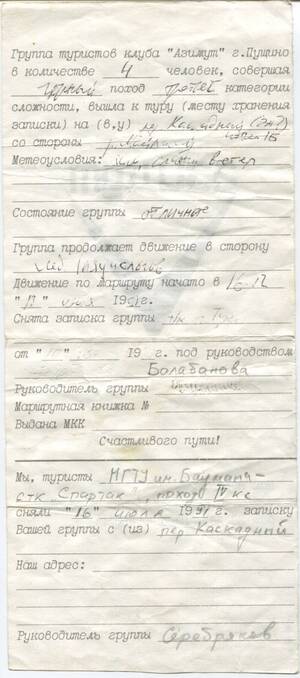 Группа туристов клуба "Азимут" г.Пущино
в количестве 4 человек, совершая
горный поход пятой категории
сложности, вышла к туру (месту хранения
записки) на (в,у) пер Каскадный
со стороны
Метеоусловия: ветер
Состояние группы отличное
Группа продолжает движение в сторону
лед
Движение по маршруту начато в 16-12
"17" июля 1991г.
Снята записка группы
от " " 19 г. под руководством
Балабанова
Руководитель группы
Маршрутная книжка №
Выдана МКК
Счастливого пути!
Мы, туристы МГТУ им. Баумана-
стк Спартак", поход IV кс
сняли "16" июля 1991 г. записку
Вашей группы с (из) пер Каскадный
Наш адрес:
Руководитель группы Серебряков